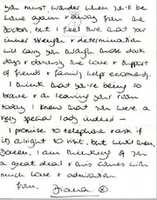 you must wonder when you'll be
home again & away from the
doctors, but I feel sure that your
inner strength & determination
will carry you through those dark
days & obviously the love & support
of friends & family helps enormously.
I think that you're being so
brave & do leaving your room
today I knew that you were a
very special lady indeed –
I promise to telephone & ask if
it's alright to visit, but until then,
I am thinking of you
a great deal & this comes with
much love & admiration
from,
Diana